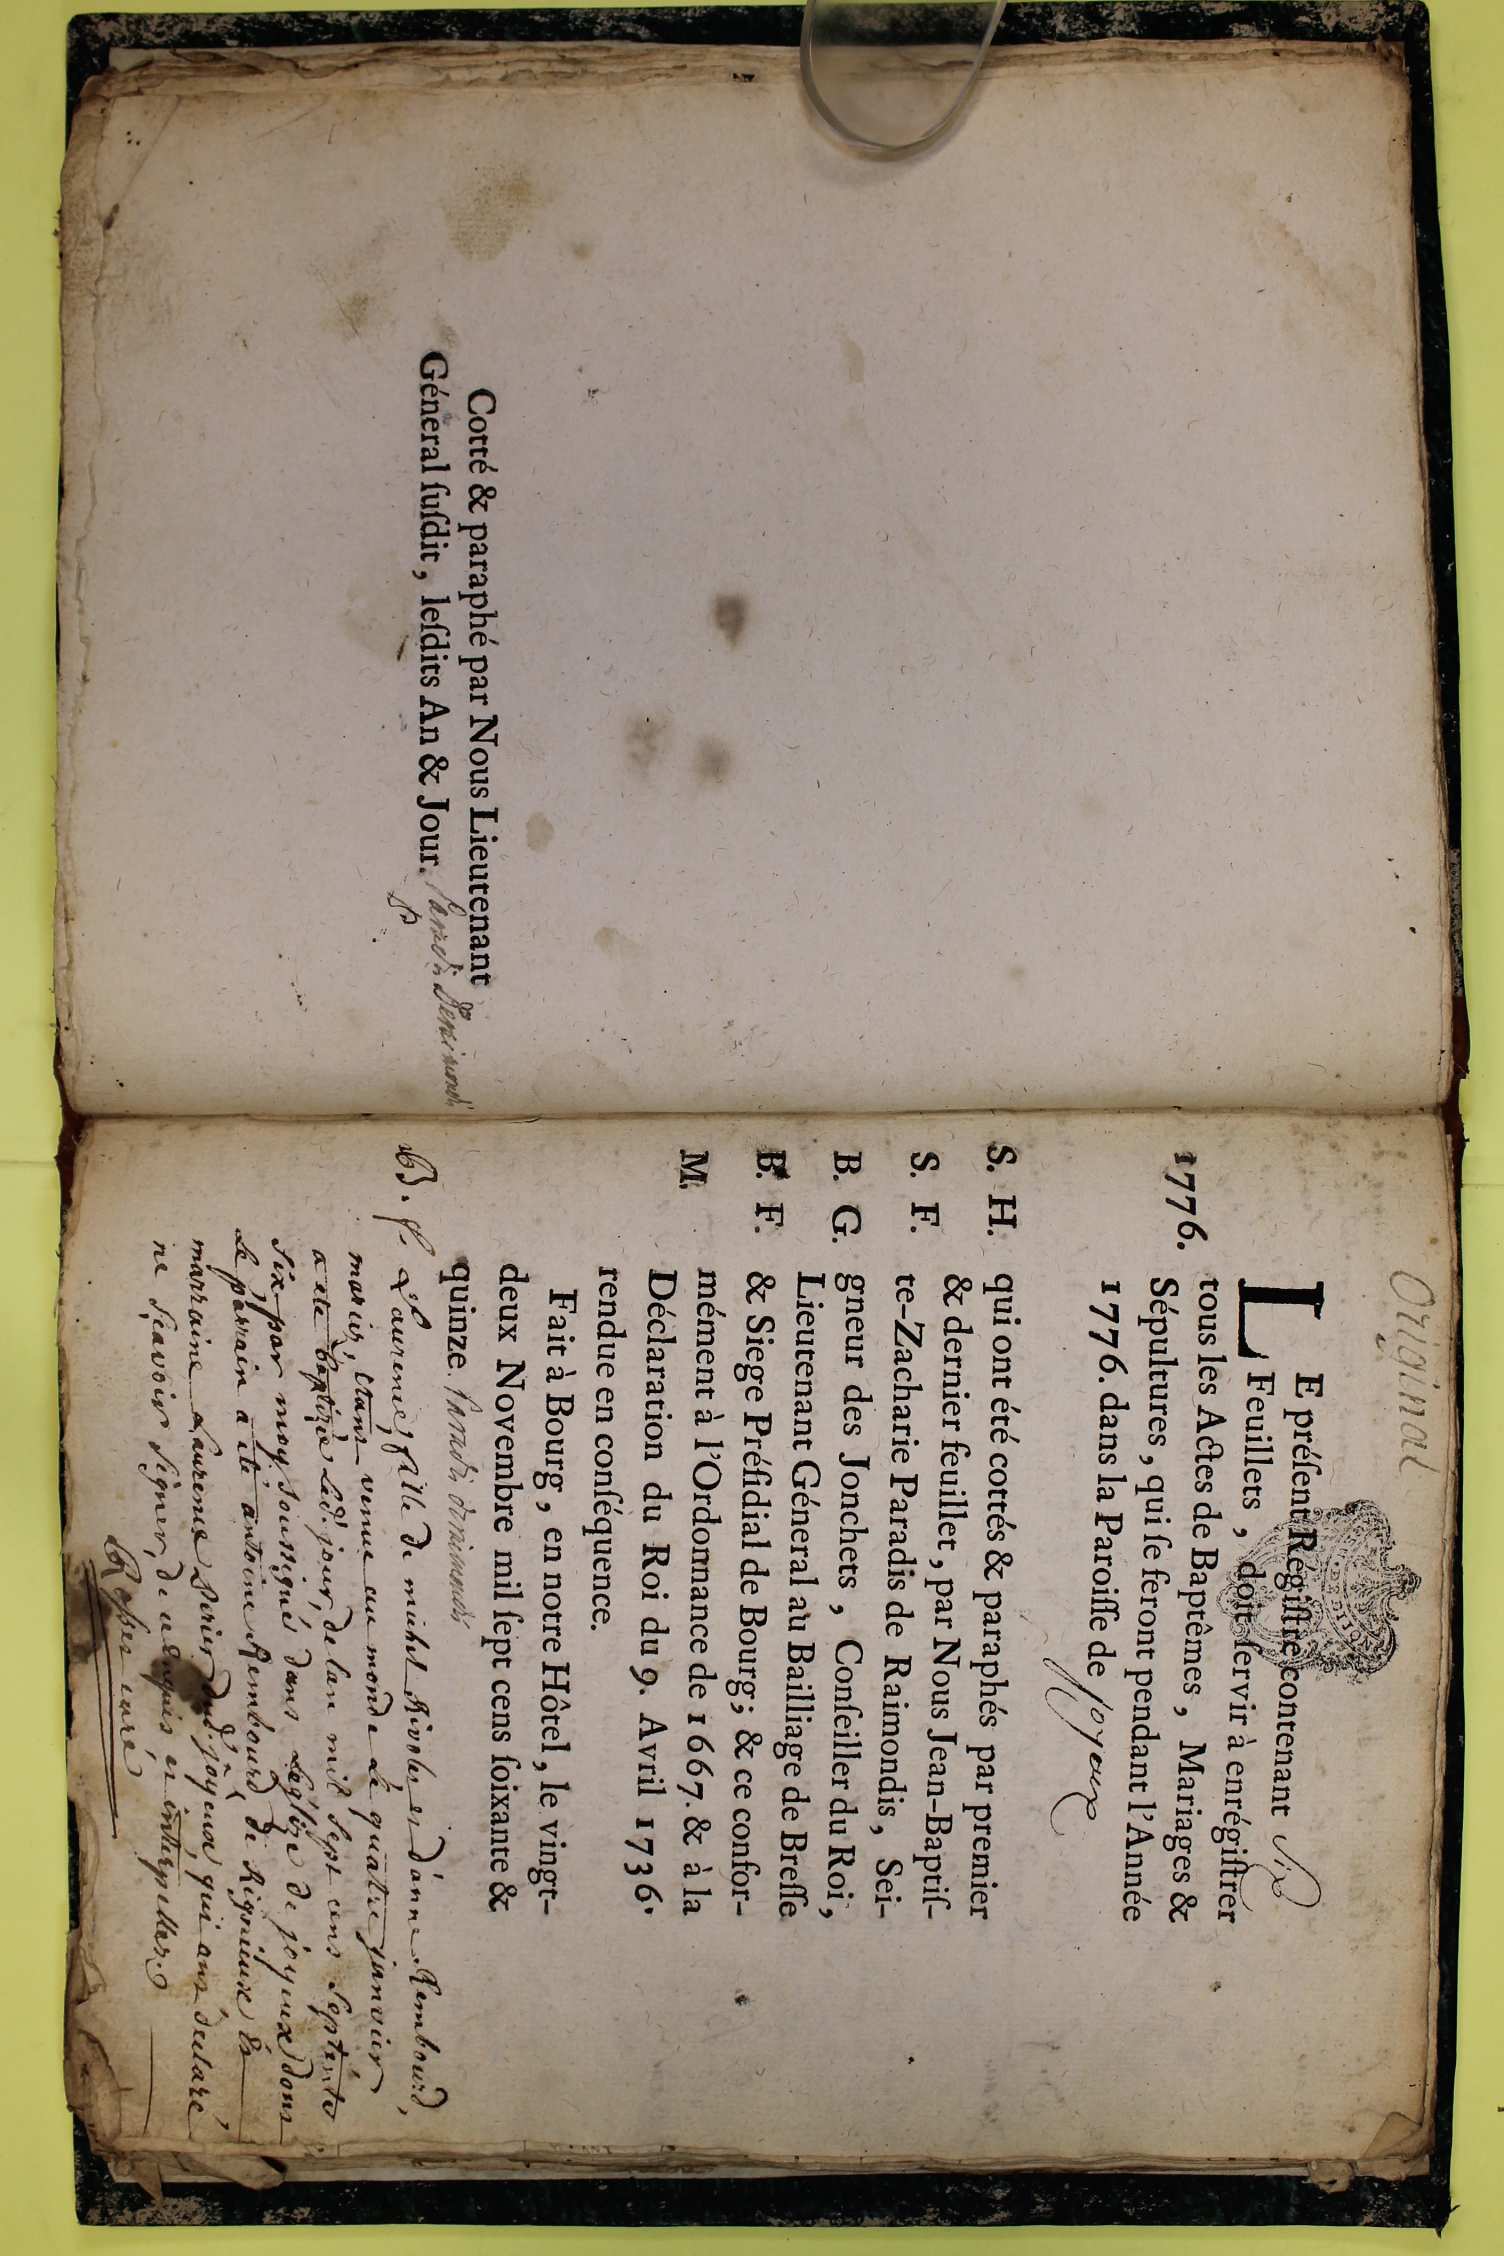 Cotté & paraphé par Nous Lieutenant
Géneral ſuſdit, leſdits An & Jour.
Original
LE préſent Régiſtre contenant Six
Feuillets, doit ſervir à enrégiſtrer
1776. tous les Actes de Baptêmes, Mariages &
Sépultures, qui ſe feront pendant l'Année
1776. dans la Paroiſſe de joyeux
S. H. qui ont été cottés & paraphés par premier
& dernier feuillet, par Nous Jean-Baptiſ-
S. F. te-Zacharie Paradis de Raimondis, Sei-
B. G. gneur des Jonchets, Conſeiller du Roi,
Lieutenant Géneral au Bailliage de Breſſe
B. F. & Siege Préſidial de Bourg; & ce confor-
M. mément à l'Ordonnance de 1667. & à la
Déclaration du Roi du 9. Avril 1736.
rendue en conſéquence.
Fait à Bourg, en notre Hôtel, le vingt-
deux Novembre mil ſept cens ſoixante &
quinze.
B. f. Laurence, fille de michel Rivolet et d'anne Rembourd,
mariés, etant venue au monde le quatre janvier
a été baptizée led. jour, de lan mil sept cens septente
six par moy soussigné dans leglize de joyeux dont
le parrain a été antoine Rembourd de Rignieux et
marraine Laurence dud. joyeux, qui ont declaré
ne sçavoir signer, de ce enquis et interpellés.
curé